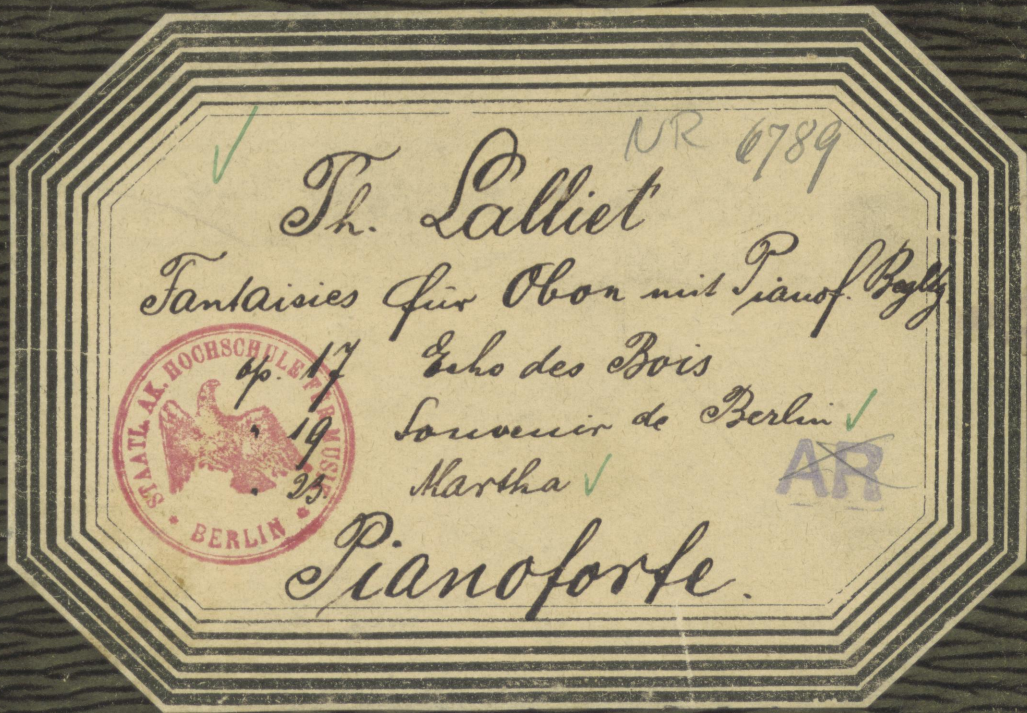 NR 6789
Th. Lalliet
Fantaisies für Oboe mit Pianof. Begltg.
op. 17 Echo des Bois
" 19 Souvenir de Berlin
" 23 Martha
Pianoforte.
STAATL. AK. HOCHSCHULE FÜR MUSIK
* BERLIN *
AR